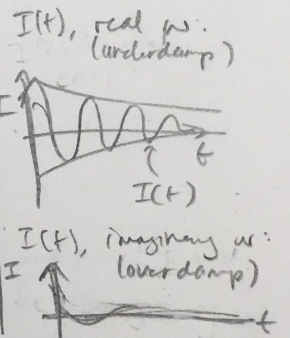 I(t), real w:
(underdamp)
I
t
I(t)
I(t), imaginary w:
(overdamp)
I
t